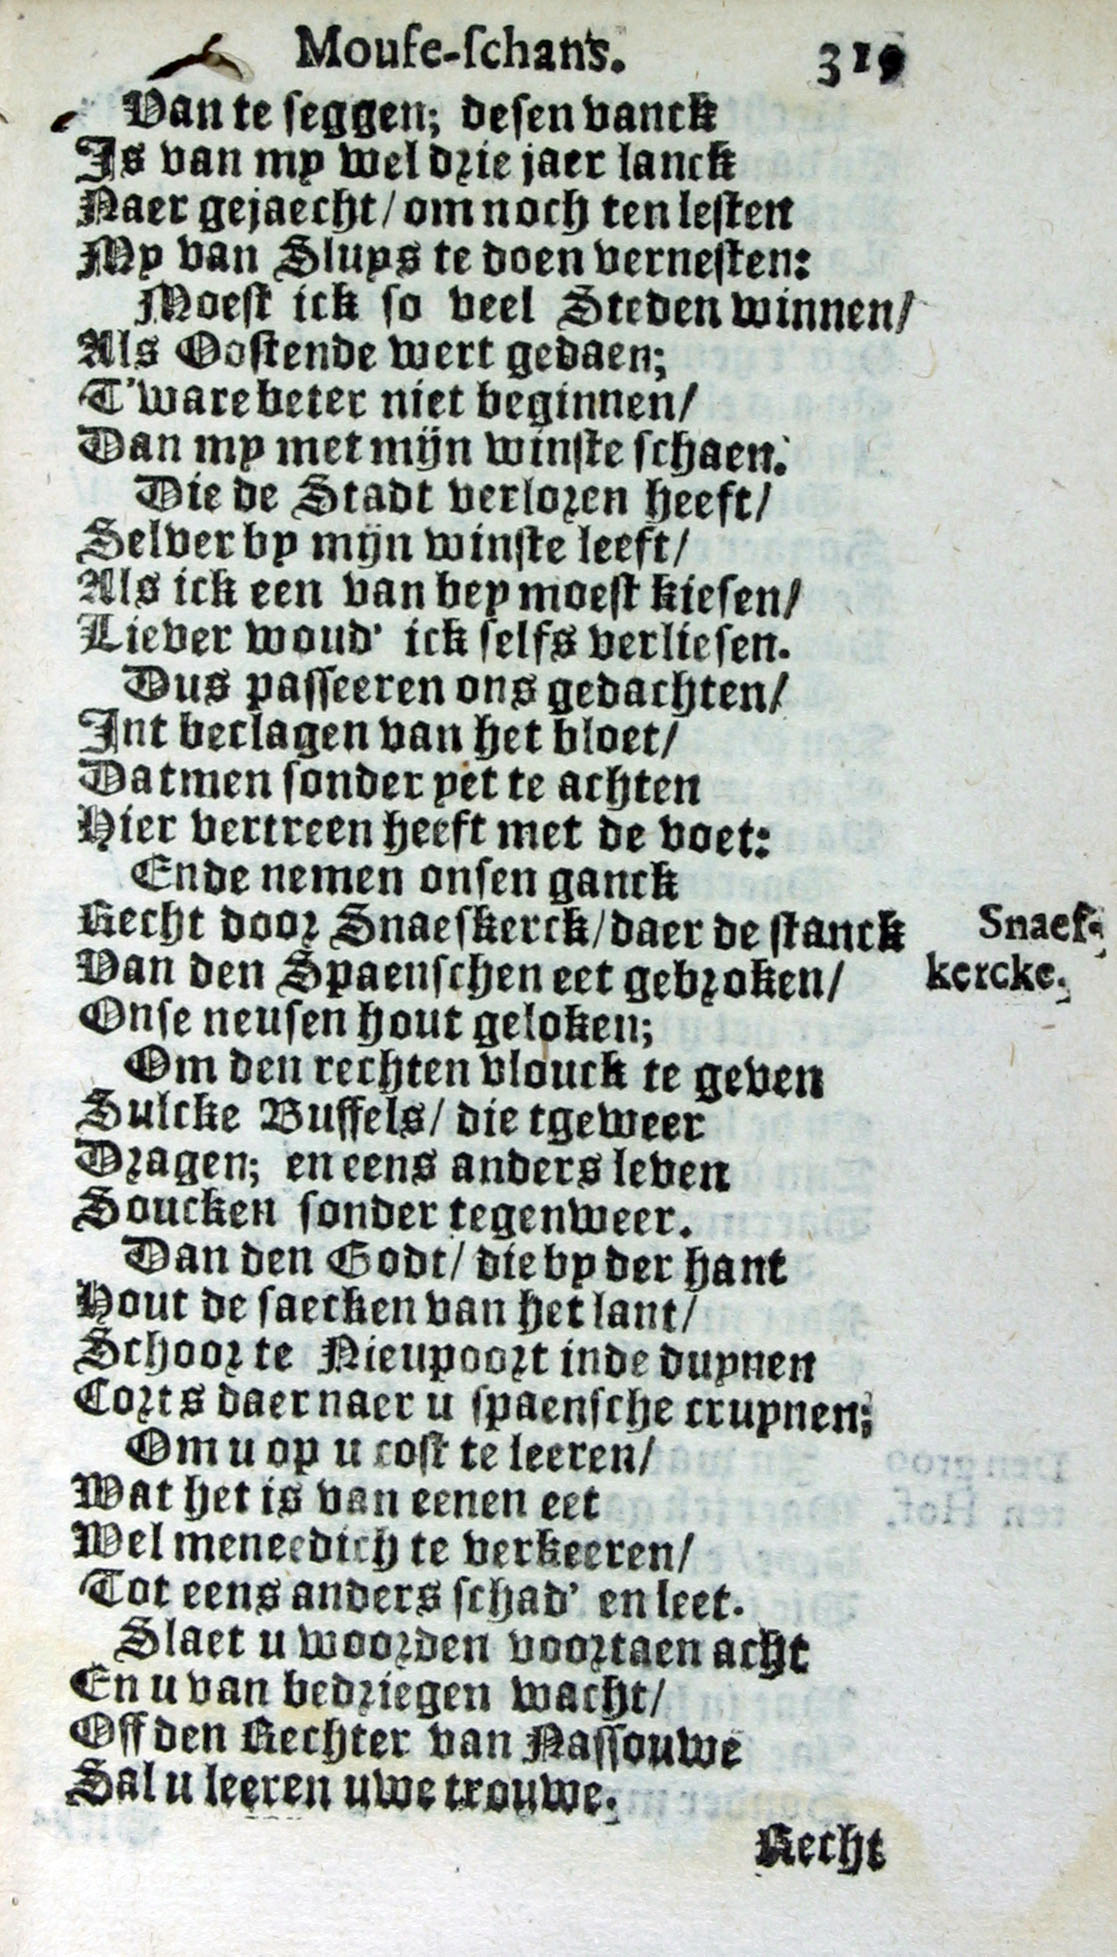 Mouse-schans. 319
Van te seggen; desen vanck
Is van my wel drie jaer lanck
Naer gejaecht / om noch ten lesten
My van Sluys te doen vernesten:
Moest ick so veel Steden winnen /
Als Oostende wert gedaen;
T'ware beter niet beginnen /
Dan my met mijn winste schaen.
Die de Stadt verloren heeft /
Selver by mijn winste leeft /
Als ick een van bey moest kiesen /
Liever woud' ick selfs verliesen.
Dus passeeren ons gedachten /
Int beclagen van het bloet /
Datmen sonder yet te achten
Hier vertreen heeft met de voet:
Ende nemen onsen ganck
Recht door Snaeskerck / daer de stanck
Snaes-
Van den Spaenschen eet gebroken /
kercke.
Onse neusen hout geloken;
Om den rechten vlouck te geven
Sulcke Buffels / die tgeweer
Dragen; en eens anders leven
Soucken sonder tegenweer.
Dan den Godt / die by der hant
Hout de saecken van het lant /
Schoor te Nieupoort inde duynen
Corts daer naer u spaensche cruynen;
Om u op u cost te leeren /
Wat het is van eenen eet
Wel meneedich te verkeeren /
Tot eens anders schad' en leet.
Slaet u woorden voortaen acht
En u van bedriegen wacht /
Off den Rechter van Nassouwe
Sal u leeren uwe trouwe.
Recht